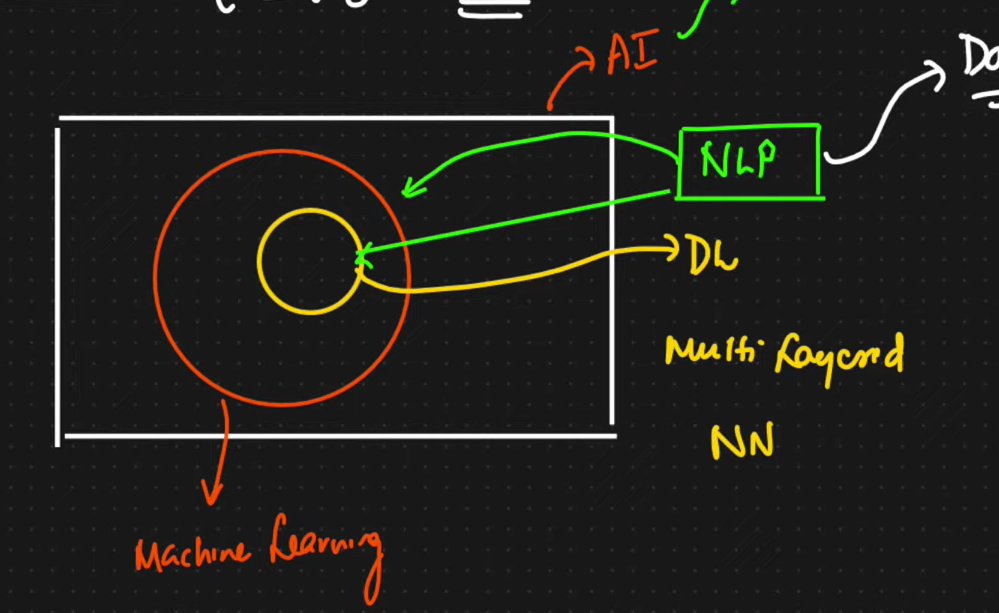 AI
NLP
DL
Multi Layered
NN
Machine Learning